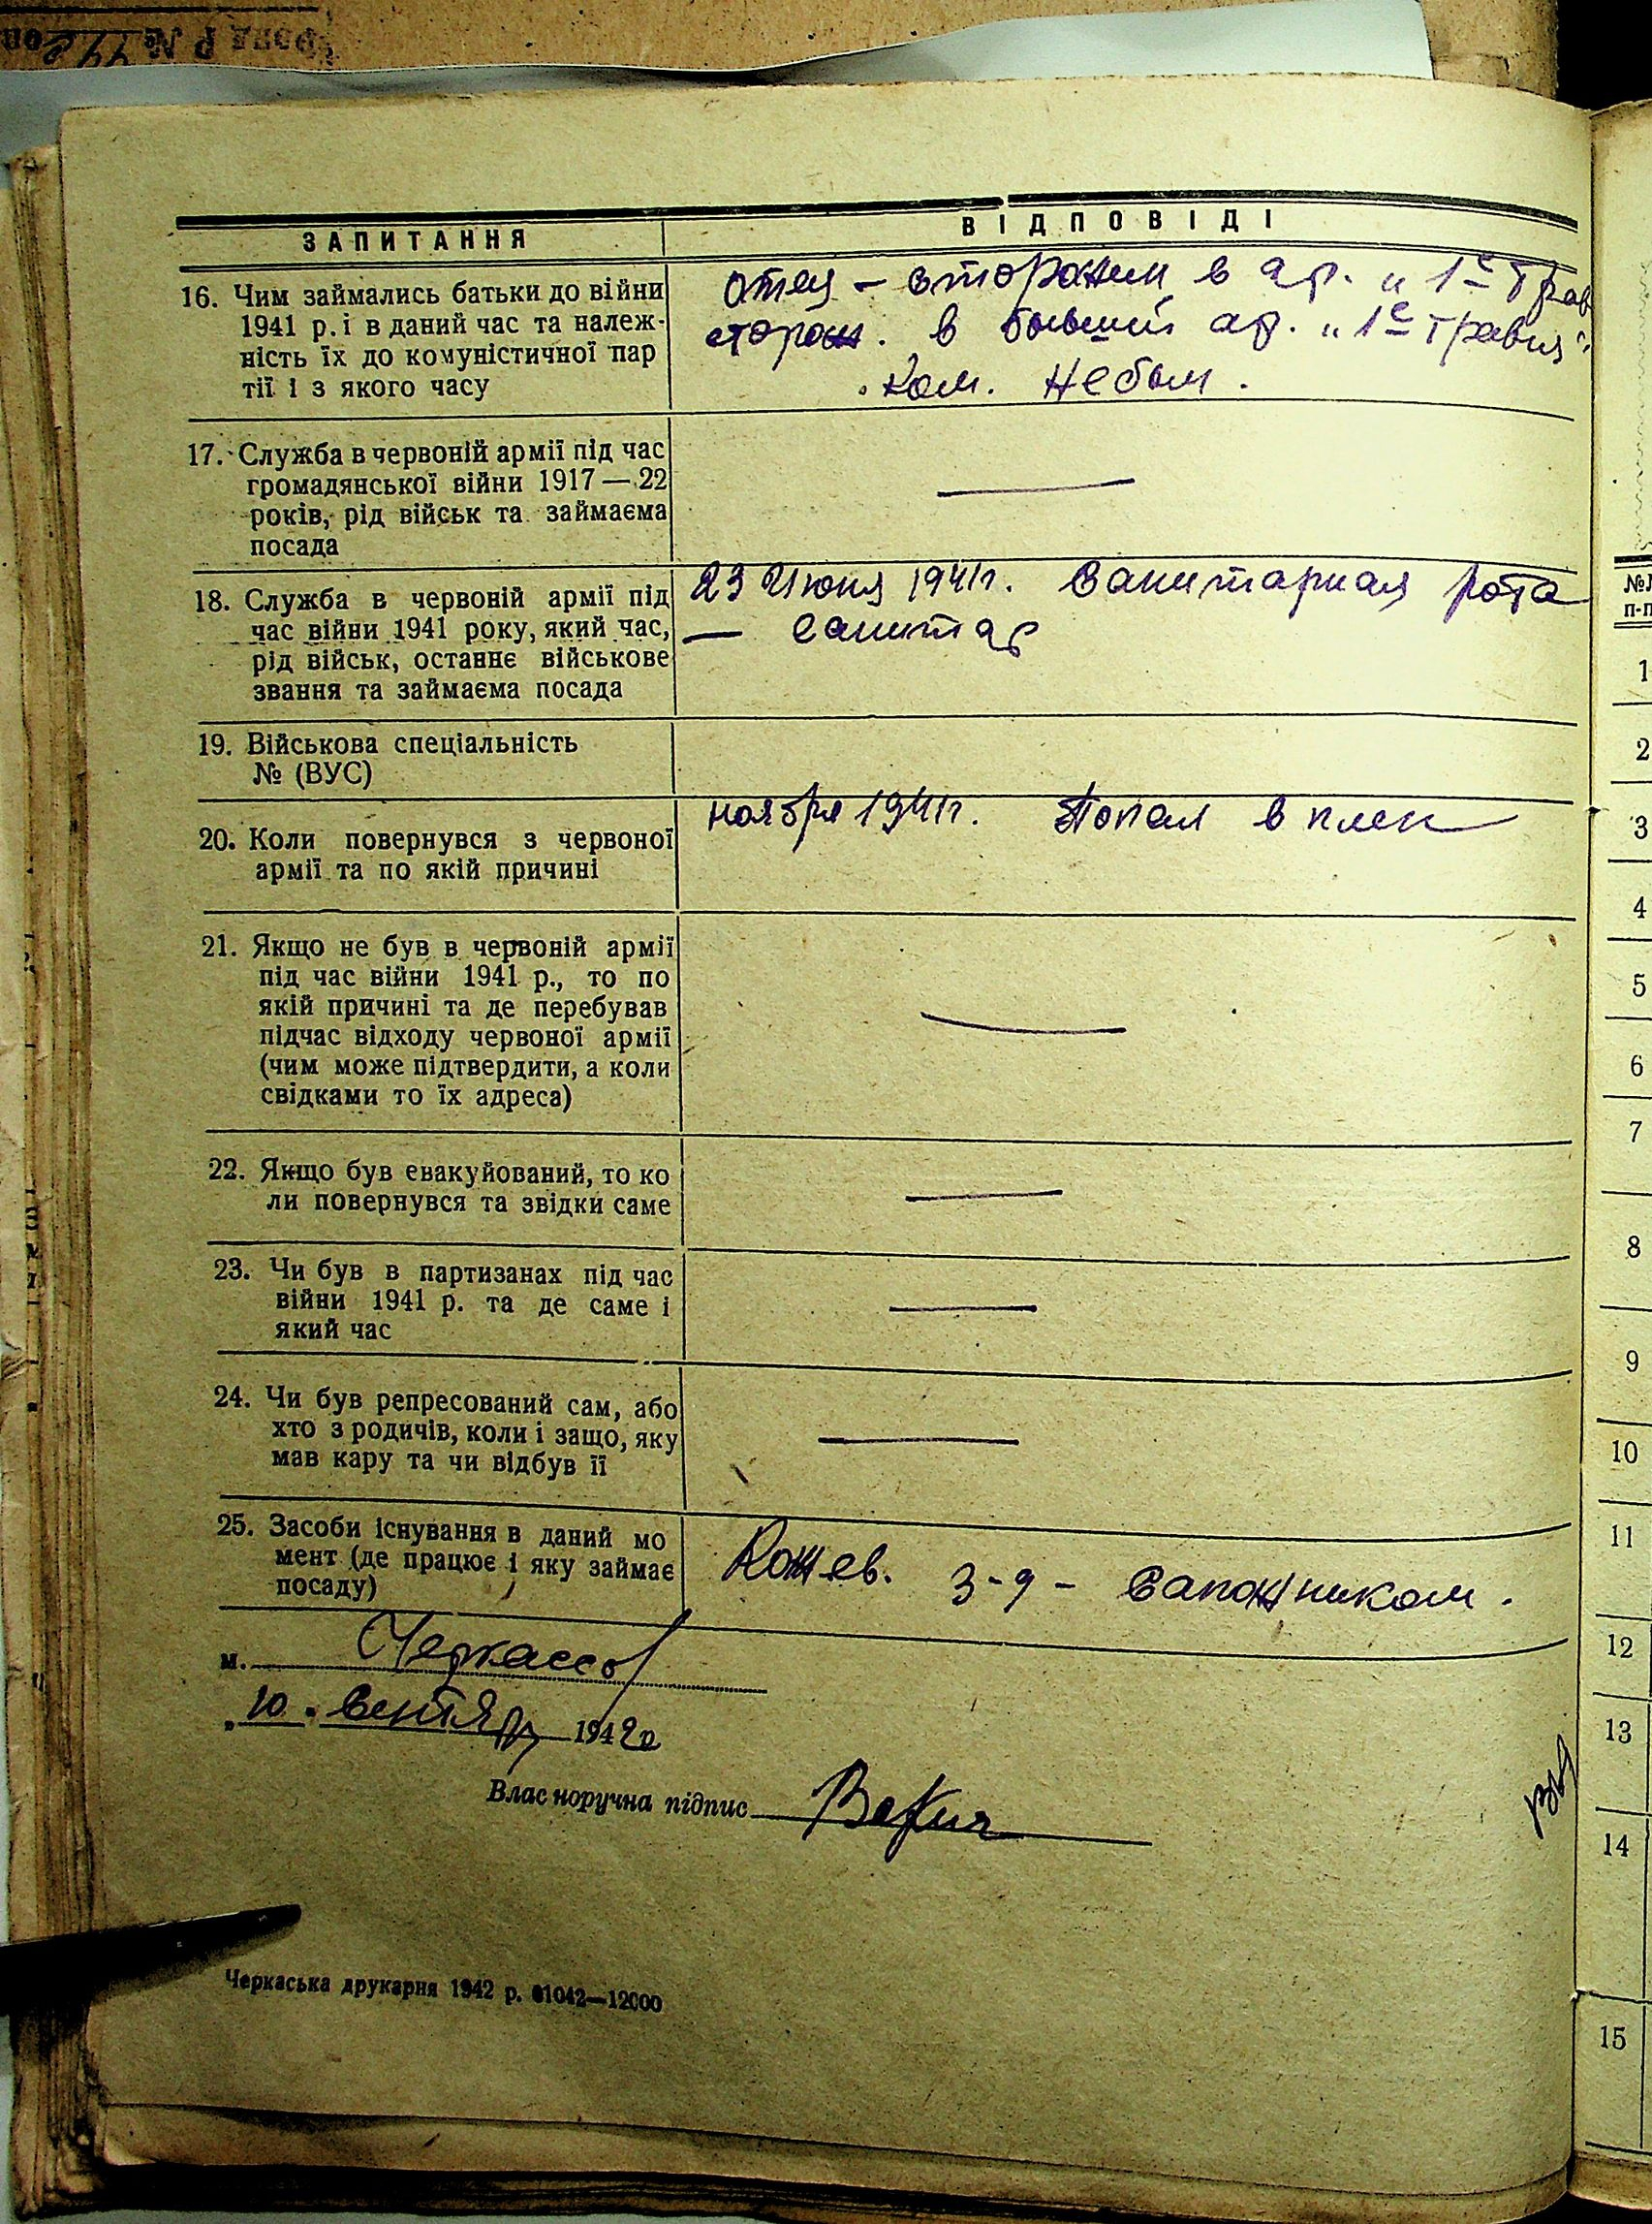 ЗАПИТАННЯ
ВІДПОВІДІ
16. Чим займались батьки до війни
1941 р. і в даний час та належ-
ність їх до комуністичної пар
тії і з якого часу
отец - сторожем в ар. „1е Трав
сторож. в бывшей ар. „1е Травня"
Ком. не был.
17. Служба в червоній армії під час
громадянської війни 1917 — 22
років, рід військ та займаєма
посада
18. Служба в червоній армії під
час війни 1941 року, який час,
рід військ, останнє військове
звання та займаєма посада
23 Июня 1941г. Санитарная рота
— санитар
19. Військова спеціальність
№ (ВУС)
20. Коли повернувся з червоної
армії та по якій причині
ноября 1941г. Попал в плен
21. Якщо не був в червоній армії
під час війни 1941 р., то по
якій причині та де перебував
підчас відходу червоної армії
(чим може підтвердити, а коли
свідками то їх адреса)
22. Якщо був евакуйований, то ко
ли повернувся та звідки саме
23. Чи був в партизанах під час
війни 1941 р. та де саме і
який час
24. Чи був репресований сам, або
хто з родичів, коли і защо, яку
мав кару та чи відбув її
25. Засоби існування в даний мо
мент (де працює і яку займає
посаду)
Кожев. з-д - Сапожником.
м. Черкассы
„10" Сентября 1942г
Власноручна підпис
Черкаська друкарня 1942 р. 01042—12000
№№
п-п
1
2
3
4
5
6
7
8
9
10
11
12
13
14
15